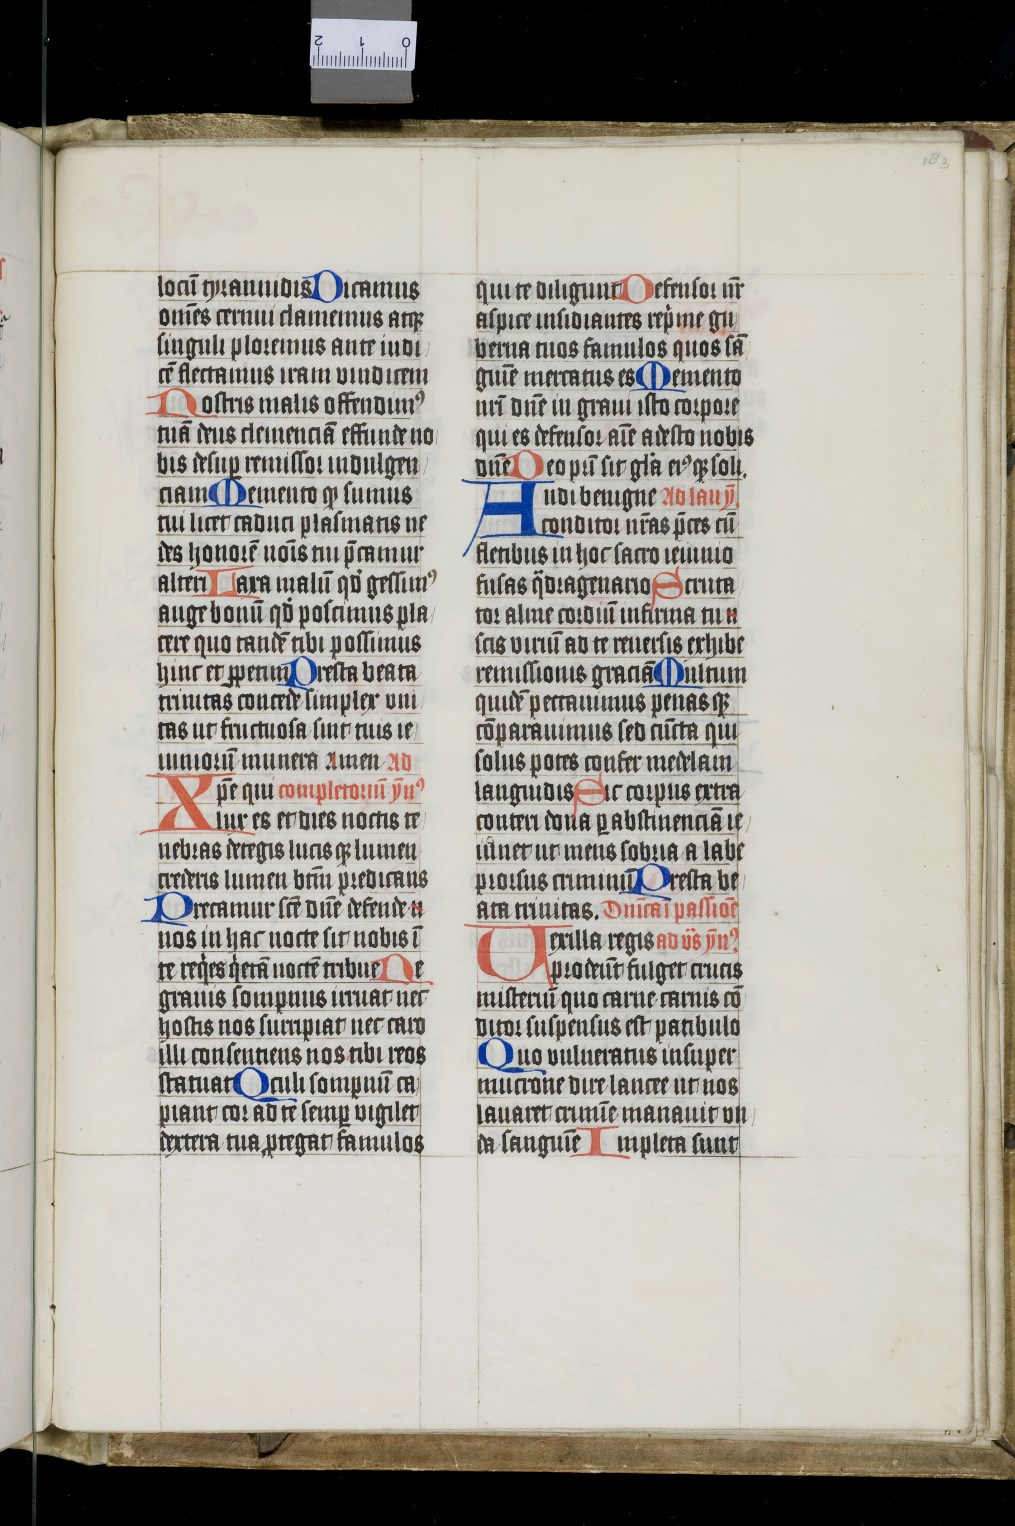 183
locū tyrannidis Dicamus
om̄es cernui clamemus atq3
singuli ploremus ante iudi
cē flectamus iram vindicem
Nostris malis offendimꝰ
tuā deus clemenciā effunde no
bis desup remissor indulgen
ciam Memento ꝙ sumus
tui licet caduci plasmatis ne
des honorē nōis tui p̄camur
alteri Laxa malū qd̓ gessimꝰ
auge bonū qd̓ poscimus pla
cere quo tandē tibi possimus
hinc et ꝑpetim Presta beata
trinitas concede simplex vni
tas ut fructuosa sint tuis ie
iuniorū munera Amen Ad
Xp̄e qui completoriū ym̄ꝰ
lux es et dies noctis te
nebras detegis lucis q3 lumen
crederis lumen btm̄ predicans
Precamur scē dn̄e defende n
nos in hac nocte sit nobis ī
te req̓es q̓etā noctē tribue Ne
grauis sompnus irruat nec
hostis nos surripiat nec caro
illi consentiens nos tibi reos
statuat Oculi sompnū ca
piant cor ad te semp̱ vigilet
dextera tua ꝓtegat famulos
qui te diligunt Defensor nr̄
aspice insidiantes rep̓me gu
berna tuos famulos quos sā
guīe mercatus es Memento
nr̄i dn̄e in graui isto corpore
qui es defensor aīe adesto nobis
dn̄e Deo pr̄i sit gl̓a eiꝰq3 soli.
Audi benigne Ad lau ym̄.
conditor nr̄as p̄ces cū
fletibus in hoc sacro ieiunio
fusas q̈dragenario Scruta
tor alme cordiū infirma tu n
scis viriū ad te reuersis exhibe
remissionis graciā Multum
quidē peccauimus penas q3
cōparauimus sed cūcta qui
solus potes confer medelam
languidis Sic corpus extra
conteri dona ꝑ abstinenciā ie
iūnet ut mens sobria a labe
prorsus criminū Presta be
ata trinitas. Dn̄ica ī passiōe
Vexilla regis ad vs̄ ym̄ꝰ
prodeūt fulget crucis
misteriū quo carne carnis cō
ditor suspensus est patibulo
Quo vulneratus insuper
mucrone dire lancee ut nos
lauaret crimīe manauit vn
da sanguīe Impleta sunt